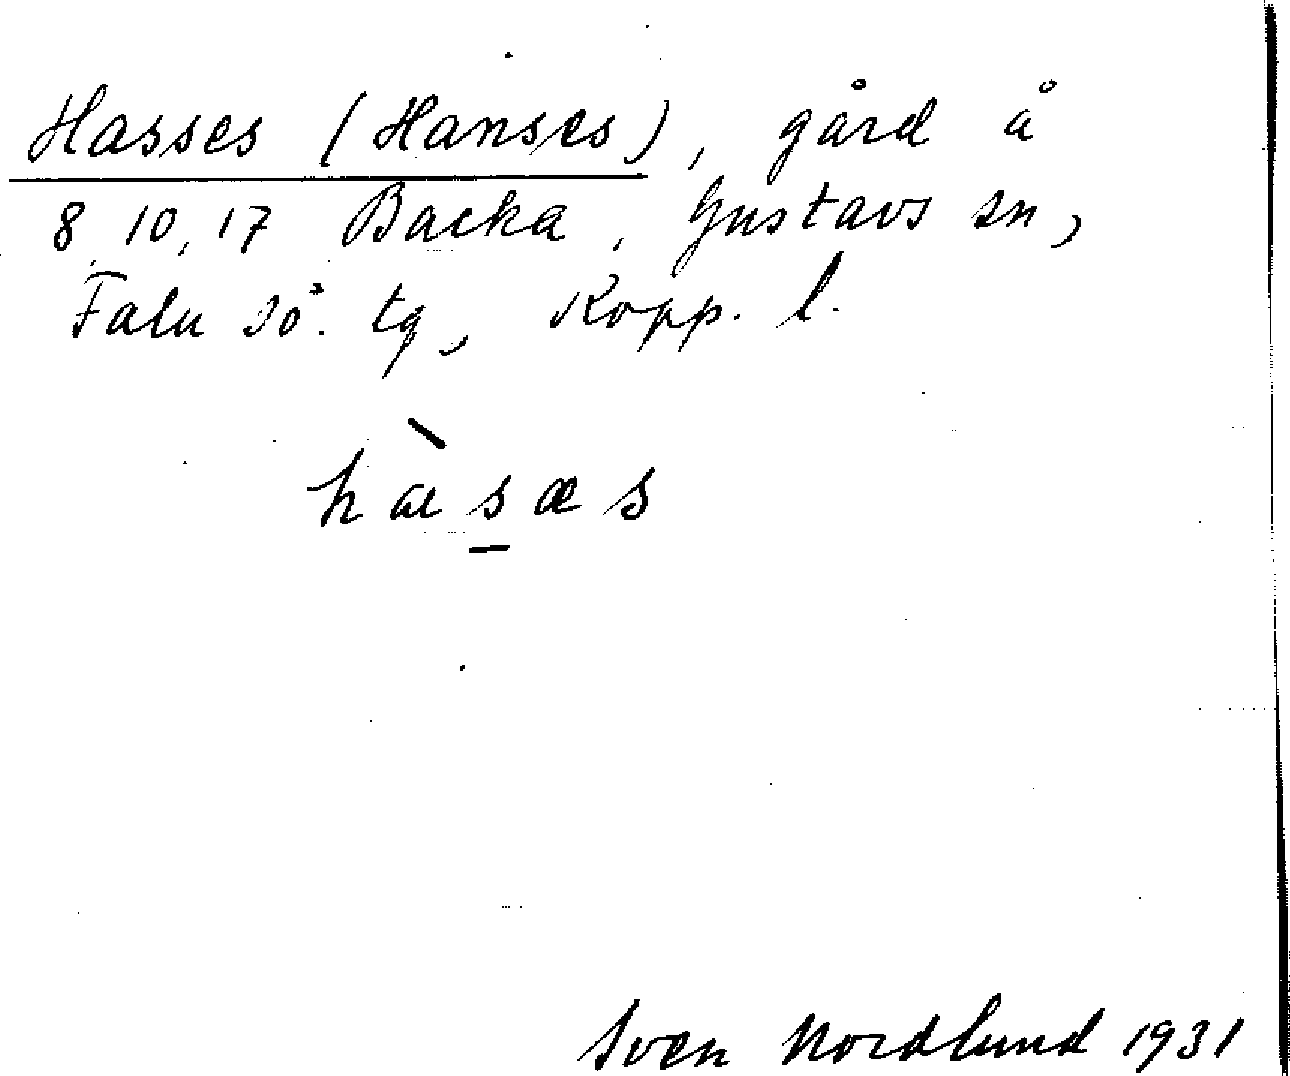 Hasses (Hanses), gård å
8, 10, 17 Backa, Gustavs sn,
Falu sö. tg, Kopp. l.
hàsæs
Sven Nordlund 1931